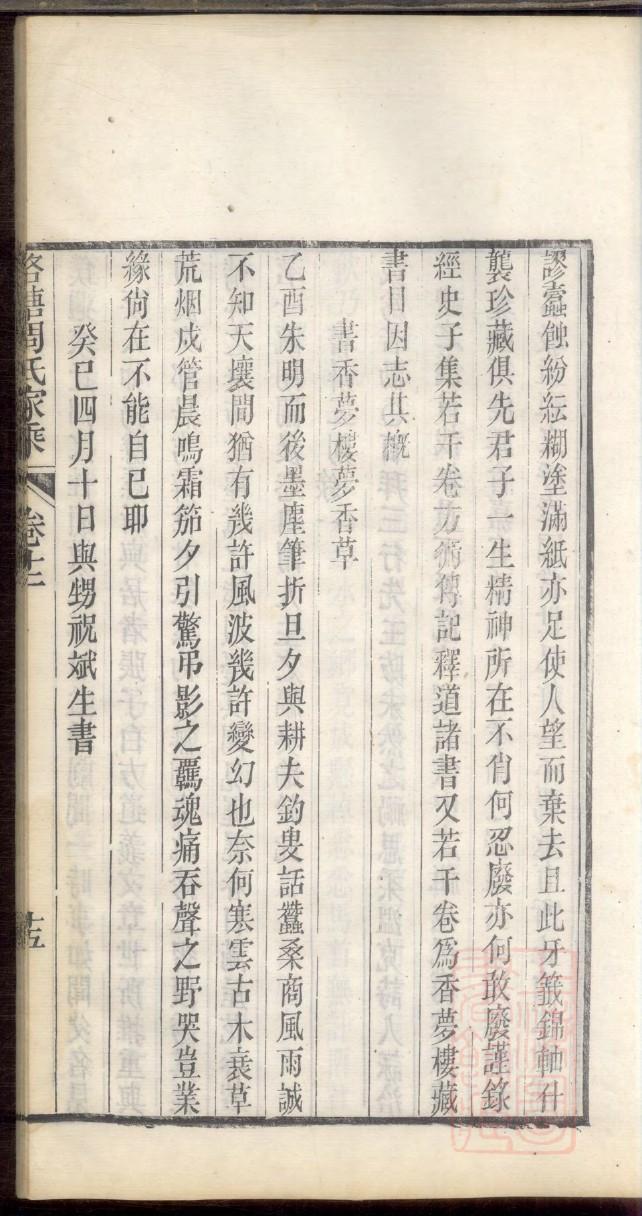 謬蠧蝕紛紜糊塗滿紙亦足使人望而棄去且此牙籤錦軸什
襲珍藏俱先君子一生精神所在不肖何忍廢亦何敢廢謹錄
經史子集若干卷方術傳記釋道諸書又若干卷爲香夢樓藏
書目因志其槪
書香夢樓夢香草
乙酉朱明而後墨塵筆折旦夕與耕夫釣叟話蠶桑商風雨誠
不知天壤間猶有幾許風波幾許變幻也奈何寒雲古木衰草
荒烟戍管晨鳴霜笳夕引驚弔影之羈魂痛吞聲之野哭豈業
緣尙在不能自已耶
癸巳四月十日與甥祝斌生書
洛塘周氏家乘 卷十二 十五